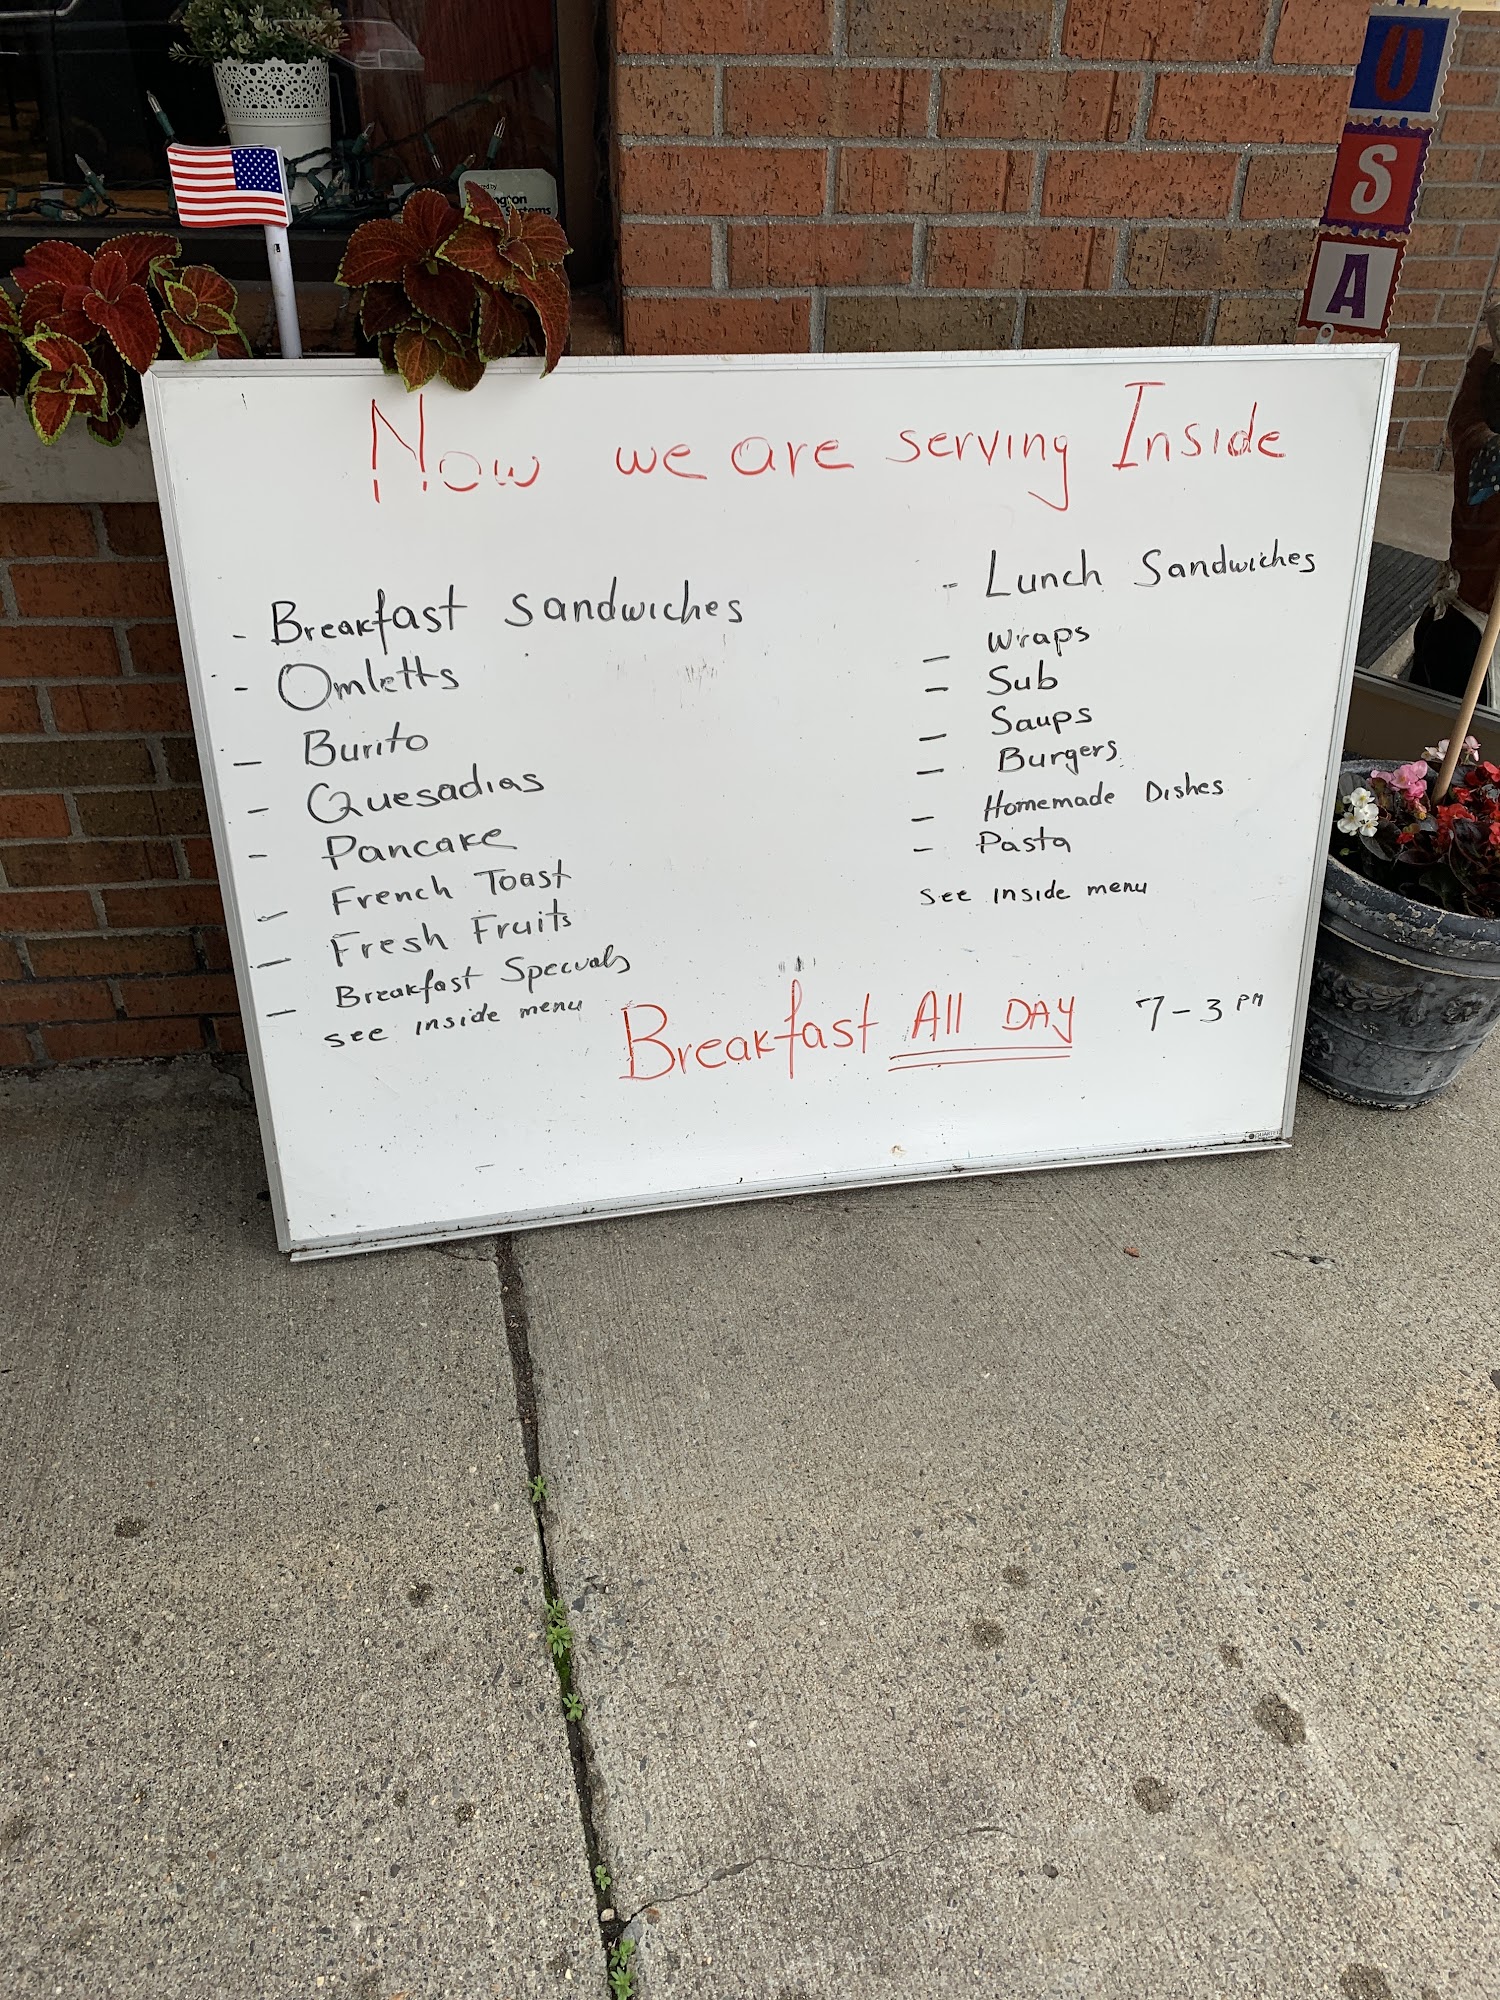 U
S
A
Now we are serving Inside
- Breakfast Sandwiches
- Omletts
- Burito
- Quesadias
- Pancake
- French Toast
- Fresh Fruits
- Breakfast Specials
see inside menu
- Lunch Sandwiches
- Wraps
- Sub
- Saups
- Burgers
- Homemade Dishes
- Pasta
see inside menu
Breakfast All DAY 7-3 PM